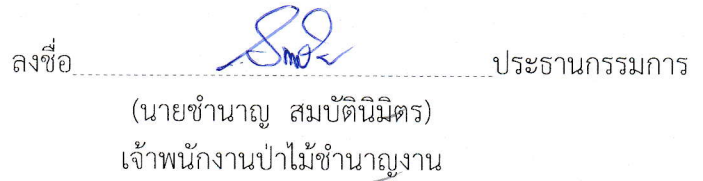 ลงชื่อ ประธานกรรมการ
(นายชำนาญ สมบัตินิมิตร)
เจ้าพนักงานป่าไม้ชำนาญงาน